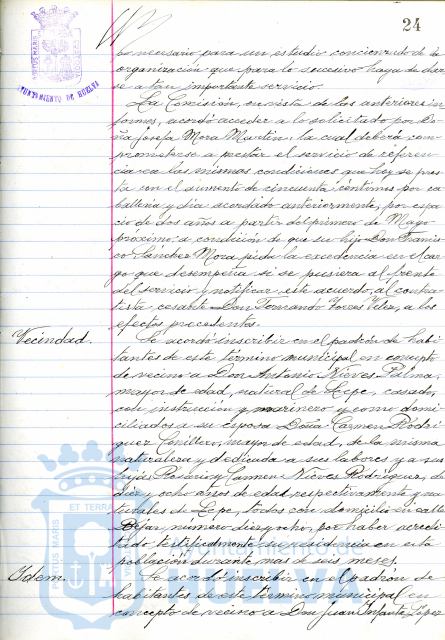 24
AYUNTAMIENTO DE HUELVA
po necesario para un estudio concienzudo de la
organización que para lo sucesivo haya de dar
se a tan importante servicio.
La Comisión, en vista de los anteriores in
formes, acordó acceder a lo solicitado por Do
ña Josefa Mora Martín, la cual deberá com
prometerse a prestar el servicio de referen
cia en las mismas condiciones que hoy se pres
ta con el aumento de cincuenta céntimos por ca
ballería y día acordado anteriormente, por espa
cio de dos años a partir del primero de Mayo
próximo, a condición de que su hijo Don Francis
co Sánchez Mora pida la excedencia en el car
go que desempeña si se pusiera al frente
del servicio y notificar este acuerdo, al contra
tista cesante Don Fernando Torres Vélez, a los
efectos procedentes.
Vecindad.
Se acordó inscribir en el padrón de habi
tantes de este término municipal en concepto
de vecino a Don Antonio Nieves Palma,
mayor de edad, natural de Lepe, casado,
con instrucción y marinero y como domi
ciliados a su esposa Doña Carmen Rodrí
guez, mayor de edad, de la misma
naturaleza y dedicada a sus labores y a sus
hijas Rosario y Carmen Nieves Rodríguez, de
diez y ocho años de edad, respectivamente y na
turales de Lepe, todos con domicilio en calle
número diez y ocho, por haber acredi
tado testificalmente su residencia en esta
población durante más de seis meses.
Idem.
Se acordó inscribir en el padrón de
habitantes de este término municipal en
concepto de vecino a Don Juan Infante López
PORTUS MARIS ET TERRAE
Ayuntamiento de
HUELVA